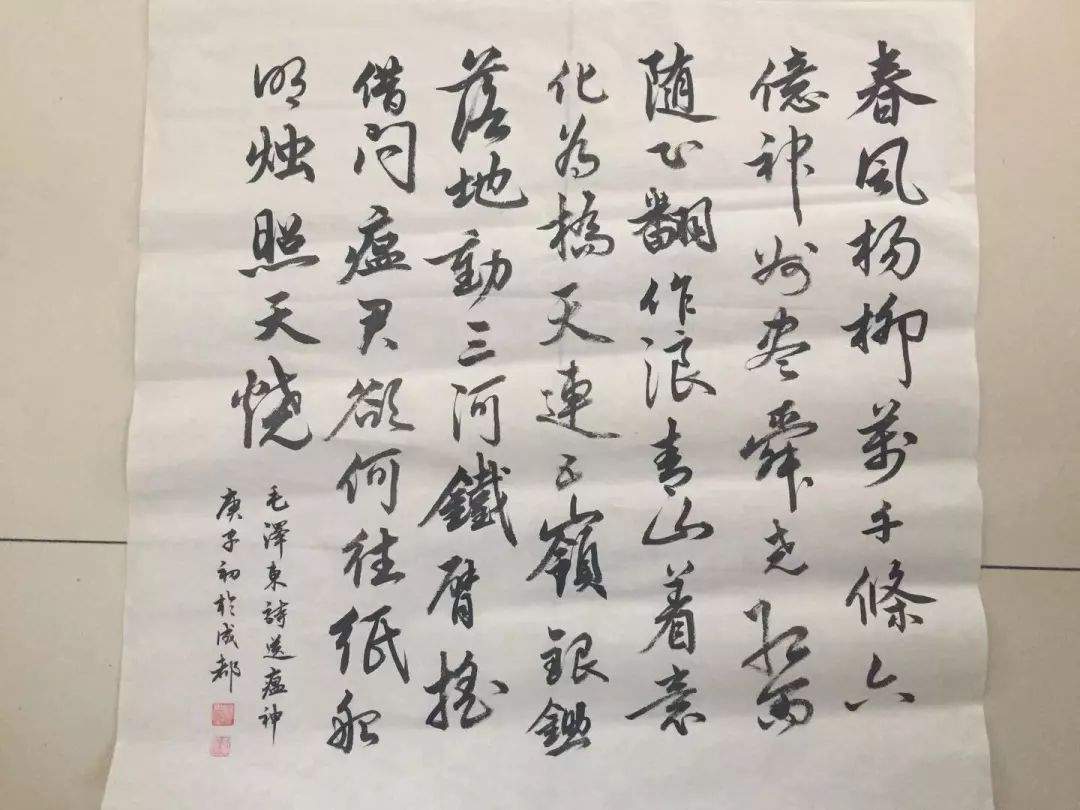 春风杨柳万千條六
億神州尽舜尧红雨
随心翻作浪青山着意
化为橋天連五嶺銀鋤
落地動三河鐵臂摇
借问瘟君欲何往纸船
明烛照天烧
毛澤東詩送瘟神
庚子初於成都